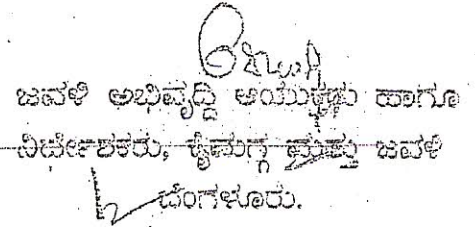 ಜವಳಿ ಅಭಿವೃದ್ಧಿ ಆಯುಕ್ತರು ಹಾಗೂ
ನಿರ್ದೇಶಕರು, ಕೈಮಗ್ಗ ಮತ್ತು ಜವಳಿ
ಬೆಂಗಳೂರು.